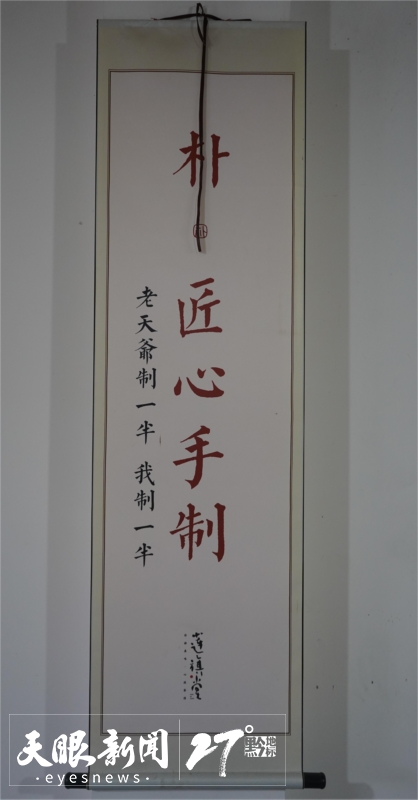 朴
匠心手制
老天爷制一半 我制一半
天眼新闻
·eyesnews·
27°